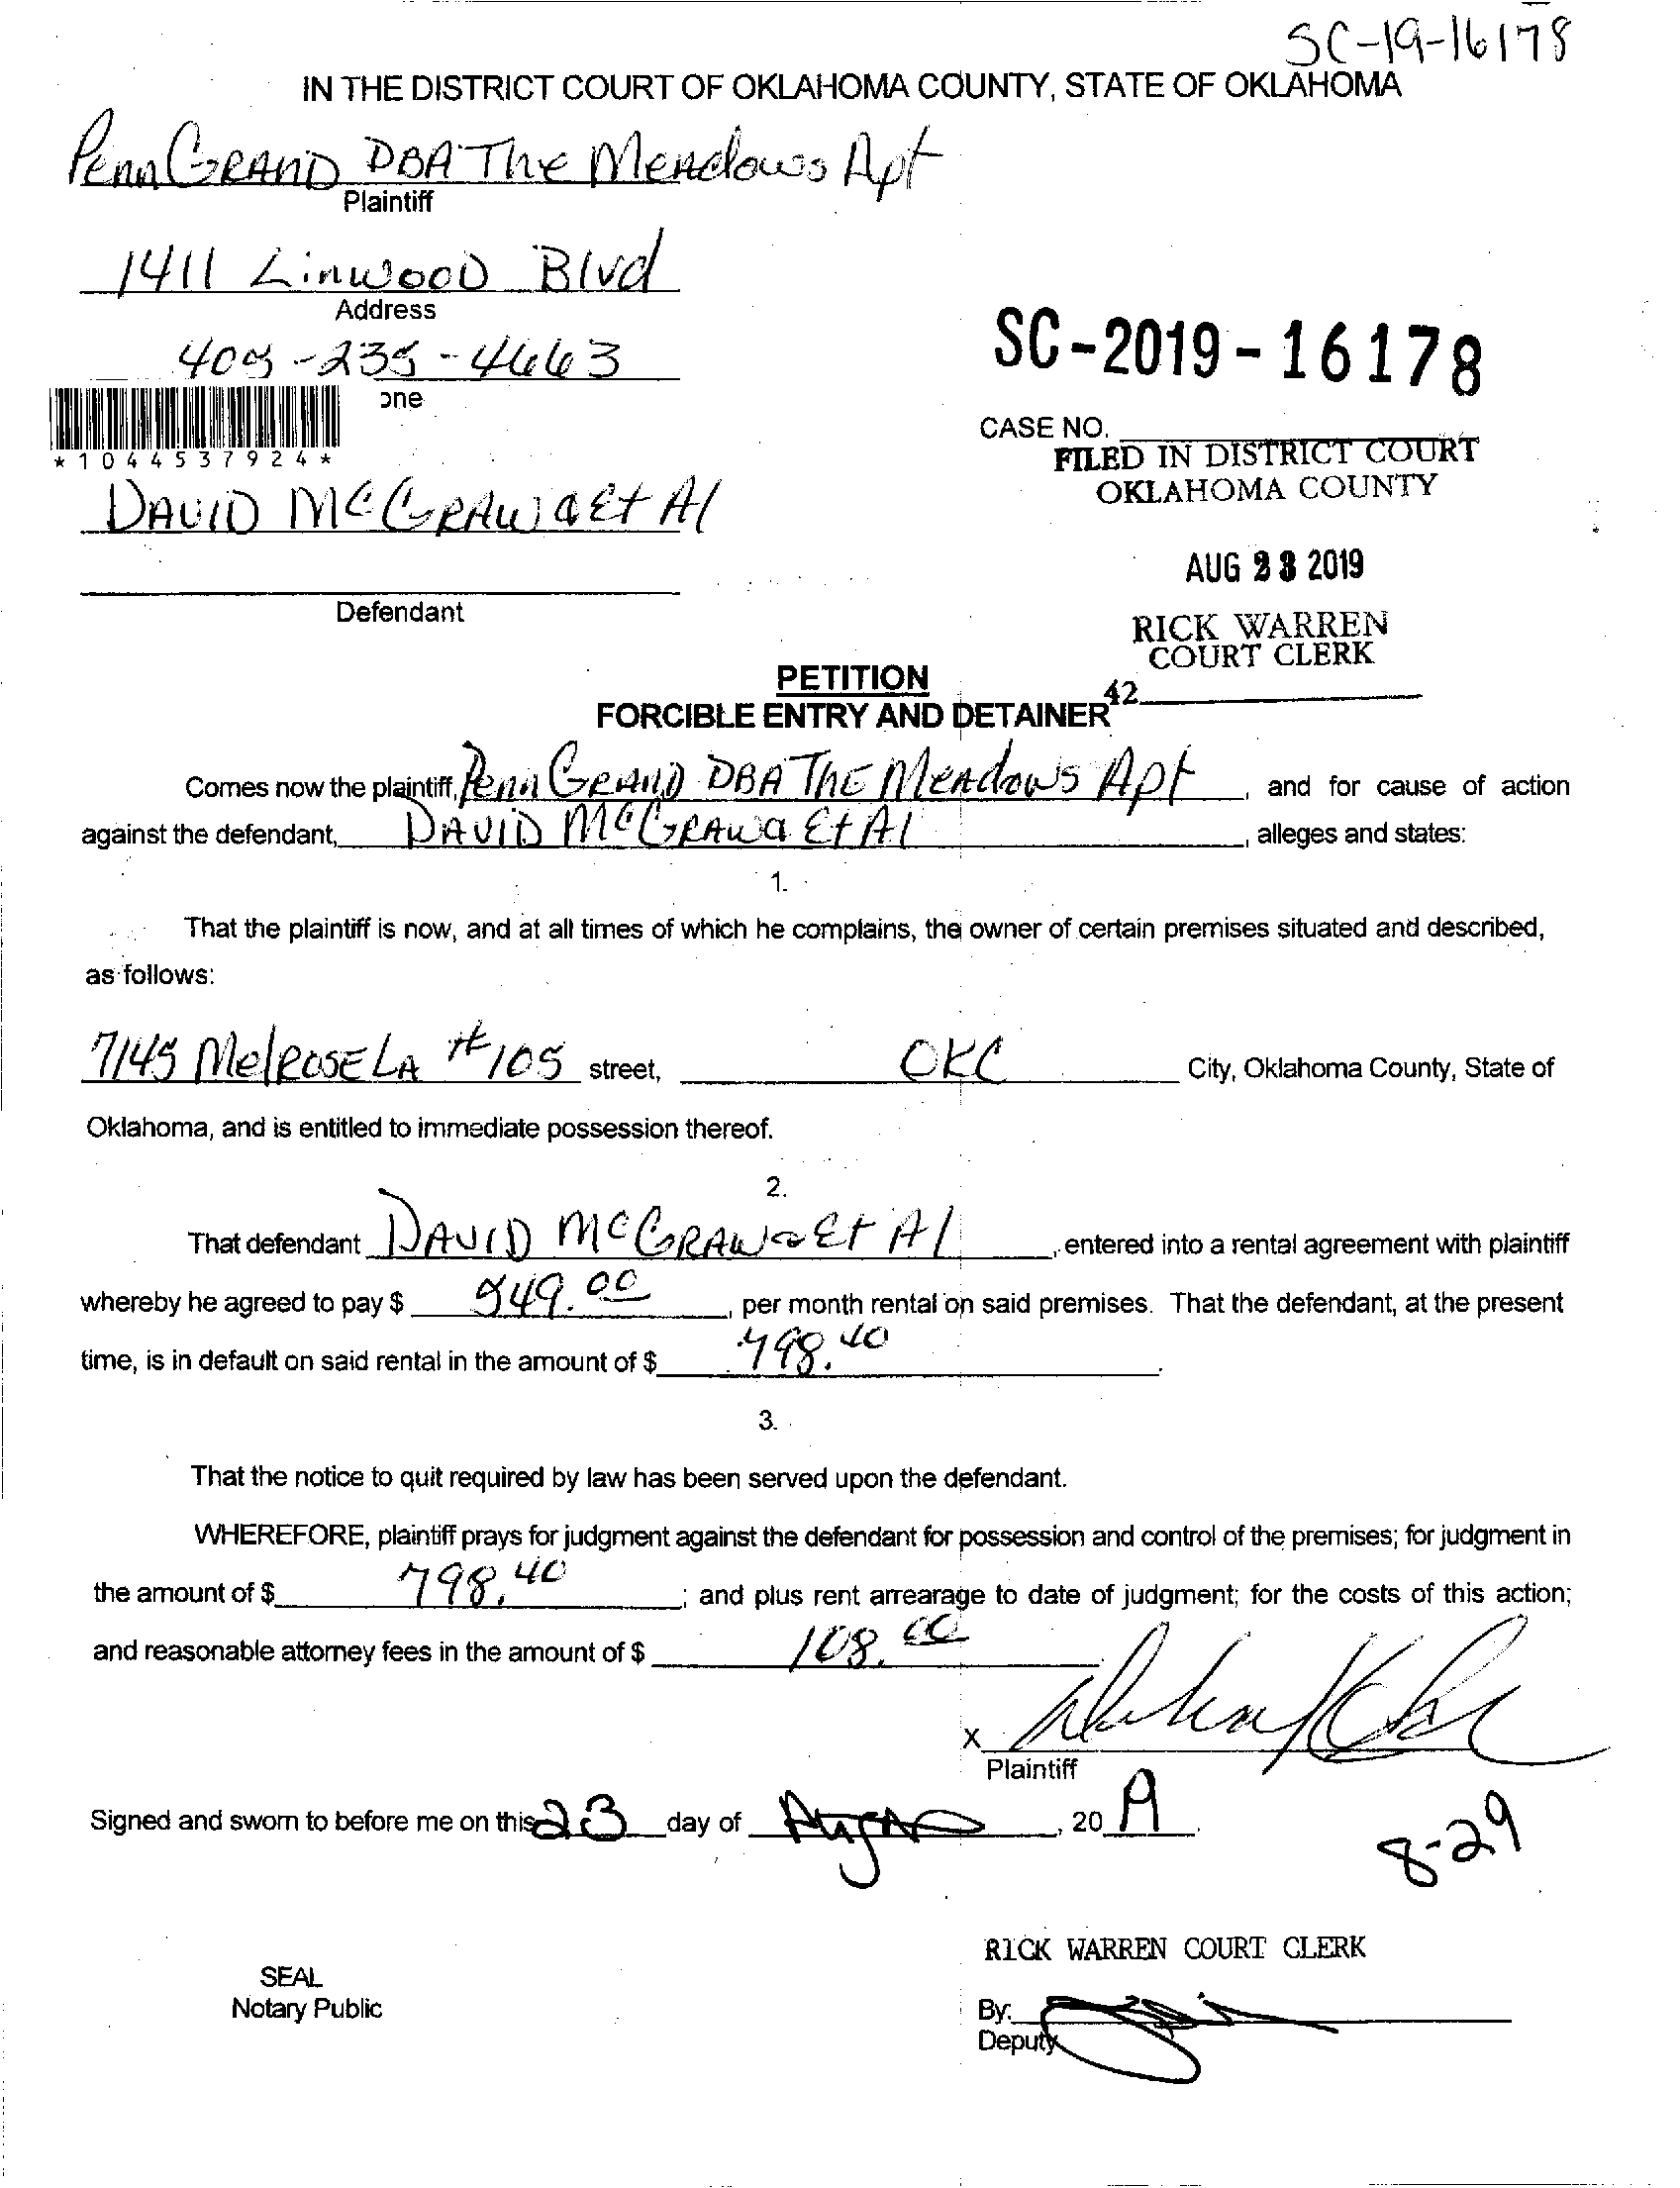 SC-19-16178
IN THE DISTRICT COURT OF OKLAHOMA COUNTY, STATE OF OKLAHOMA
Penn GRAND DBA The Meadows Apt
Plaintiff
1411 Linwood Blvd
Address
405-235-4663
one
SC-2019-16178
CASE NO.
*1044537924*
FILED IN DISTRICT COURT
OKLAHOMA COUNTY
DAVID McGRAW Et Al
AUG 23 2019
Defendant
RICK WARREN
COURT CLERK
42
PETITION
FORCIBLE ENTRY AND DETAINER
Comes now the plaintiff, Penn GRAND DBA The Meadows Apt, and for cause of action
against the defendant, DAVID McGRAW Et Al, alleges and states:
1.
That the plaintiff is now, and at all times of which he complains, the owner of certain premises situated and described,
as follows:
7145 MelROSE LA #105 street, OKC City, Oklahoma County, State of
Oklahoma, and is entitled to immediate possession thereof.
2.
That defendant DAVID McGRAW Et Al, entered into a rental agreement with plaintiff
whereby he agreed to pay $ 549.00, per month rental on said premises. That the defendant, at the present
time, is in default on said rental in the amount of $ 798.40.
3.
That the notice to quit required by law has been served upon the defendant.
WHEREFORE, plaintiff prays for judgment against the defendant for possession and control of the premises; for judgment in
the amount of $ 798.40; and plus rent arrearage to date of judgment; for the costs of this action;
and reasonable attorney fees in the amount of $ 108.00
X
Plaintiff
Signed and sworn to before me on this 23 day of, 20 19.
8-29
RICK WARREN COURT CLERK
SEAL
Notary Public
By:
Deputy